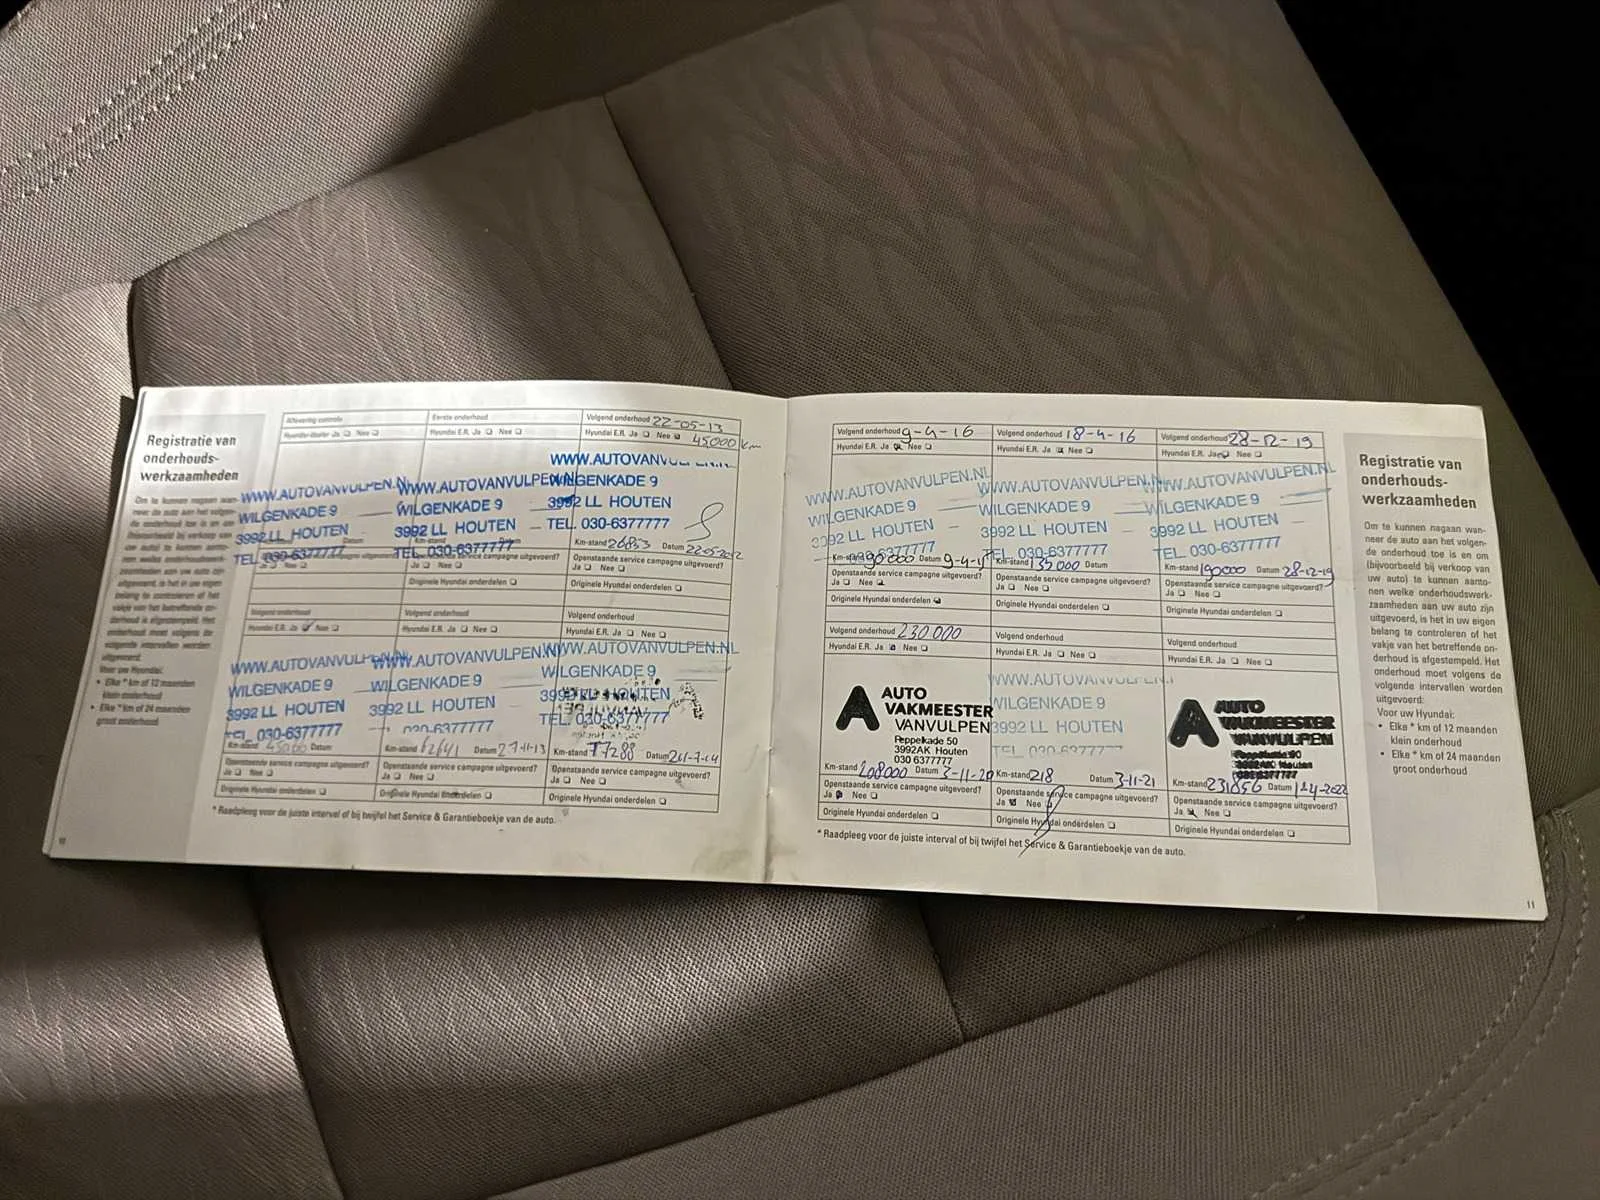 Registratie van
onderhouds-
werkzaamheden
Voor uw Hyundai:
• Elke * km of 12 maanden
klein onderhoud
• Elke * km of 24 maanden
groot onderhoud
Aflevering controle
Hyundai-dealer Ja ☐ Nee ☐
WWW.AUTOVANVULPEN.N
WILGENKADE 9
3992 LL HOUTEN
TEL. 030-6377777
Datum
Eerste onderhoud
Hyundai E.R. Ja ☐ Nee ☐
WWW.AUTOVANVULPEN.N
WILGENKADE 9
3992 LL HOUTEN
TEL. 030-6377777
Ja ☐ Nee ☐
Originele Hyundai onderdelen ☐
Volgend onderhoud 22-05-13
Hyundai E.R. Ja ☐ Nee ☒ 45000 km
WWW.AUTOVANVUL
WILGENKADE 9
3992 LL HOUTEN
TEL. 030-6377777
Km-stand 26853 Datum 22-05-2012
Openstaande service campagne uitgevoerd?
Ja ☐ Nee ☐
Originele Hyundai onderdelen ☐
Volgend onderhoud
Hyundai E.R. Ja ☑ Nee ☐
WWW.AUTOVANVUL
WILGENKADE 9
3992 LL HOUTEN
TEL. 030-6377777
Km-stand 45000 Datum
Openstaande service campagne uitgevoerd?
Ja ☐ Nee ☐
Originele Hyundai onderdelen ☐
Volgend onderhoud
Hyundai E.R. Ja ☐ Nee ☐
WWW.AUTOVANVULPEN.N
WILGENKADE 9
3992 LL HOUTEN
030-6377777
Km-stand 62641 Datum 27-11-13
Openstaande service campagne uitgevoerd?
Ja ☐ Nee ☐
Originele Hyundai onderdelen ☐
Volgend onderhoud
Hyundai E.R. Ja ☐ Nee ☐
WWW.AUTOVANVULPEN.NL
WILGENKADE 9
3992 LL HOUTEN
TEL. 030-6377777
Km-stand 77288 Datum
Openstaande service campagne uitgevoerd?
Ja ☐ Nee ☐
Originele Hyundai onderdelen ☐
* Raadpleeg voor de juiste interval of bij twijfel het Service & Garantieboekje van de auto.
10
Volgend onderhoud 9-4-16
Hyundai E.R. Ja ☒ Nee ☐
WWW.AUTOVANVULPEN.NL
WILGENKADE 9
3992 LL HOUTEN
6377777
Km-stand 90000 Datum 9-4-15
Openstaande service campagne uitgevoerd?
Ja ☐ Nee ☒
Originele Hyundai onderdelen ☒
Volgend onderhoud 18-4-16
Hyundai E.R. Ja ☒ Nee ☐
WWW.AUTOVANVULPEN.N
WILGENKADE 9
3992 LL HOUTEN
TEL. 030-6377777
Km-stand 135000 Datum
Openstaande service campagne uitgevoerd?
Ja ☐ Nee ☐
Originele Hyundai onderdelen ☐
Volgend onderhoud 28-12-19
Hyundai E.R. Ja ☒ Nee ☐
WWW.AUTOVANVULPEN.NL
WILGENKADE 9
3992 LL HOUTEN
TEL. 030-6377777
Km-stand 190000 Datum 28-12-19
Openstaande service campagne uitgevoerd?
Ja ☐ Nee ☐
Originele Hyundai onderdelen ☐
Volgend onderhoud 230.000
Hyundai E.R. Ja ☒ Nee ☐
A AUTO
VAKMEESTER
VANVULPEN
Peppelkade 50
3992AK Houten
030 6377777
Km-stand 208000 Datum 3-11-20
Openstaande service campagne uitgevoerd?
Ja ☒ Nee ☐
Originele Hyundai onderdelen ☐
Volgend onderhoud
Hyundai E.R. Ja ☐ Nee ☐
WWW.AUTOVANVULPEN.
WILGENKADE 9
3992 LL HOUTEN
TEL. 030-6377777
Km-stand 218 Datum 3-11-21
Openstaande service campagne uitgevoerd?
Ja ☒ Nee ☐
Originele Hyundai onderdelen ☐
Volgend onderhoud
Hyundai E.R. Ja ☐ Nee ☐
A AUTO
VAKMEESTER
VANVULPEN
Km-stand 231856 Datum
Openstaande service campagne uitgevoerd?
Ja ☒ Nee ☐
Originele Hyundai onderdelen ☐
* Raadpleeg voor de juiste interval of bij twijfel het Service & Garantieboekje van de auto.
Registratie van
onderhouds-
werkzaamheden
Om te kunnen nagaan wan-
neer de auto aan het volgen-
de onderhoud toe is en om
(bijvoorbeeld bij verkoop van
uw auto) te kunnen aanto-
nen welke onderhoudswerk-
zaamheden aan uw auto zijn
uitgevoerd, is het in uw eigen
belang te controleren of het
vakje van het betreffende on-
derhoud is afgestempeld. Het
onderhoud moet volgens de
volgende intervallen worden
uitgevoerd:
Voor uw Hyundai:
• Elke * km of 12 maanden
klein onderhoud
• Elke * km of 24 maanden
groot onderhoud
11